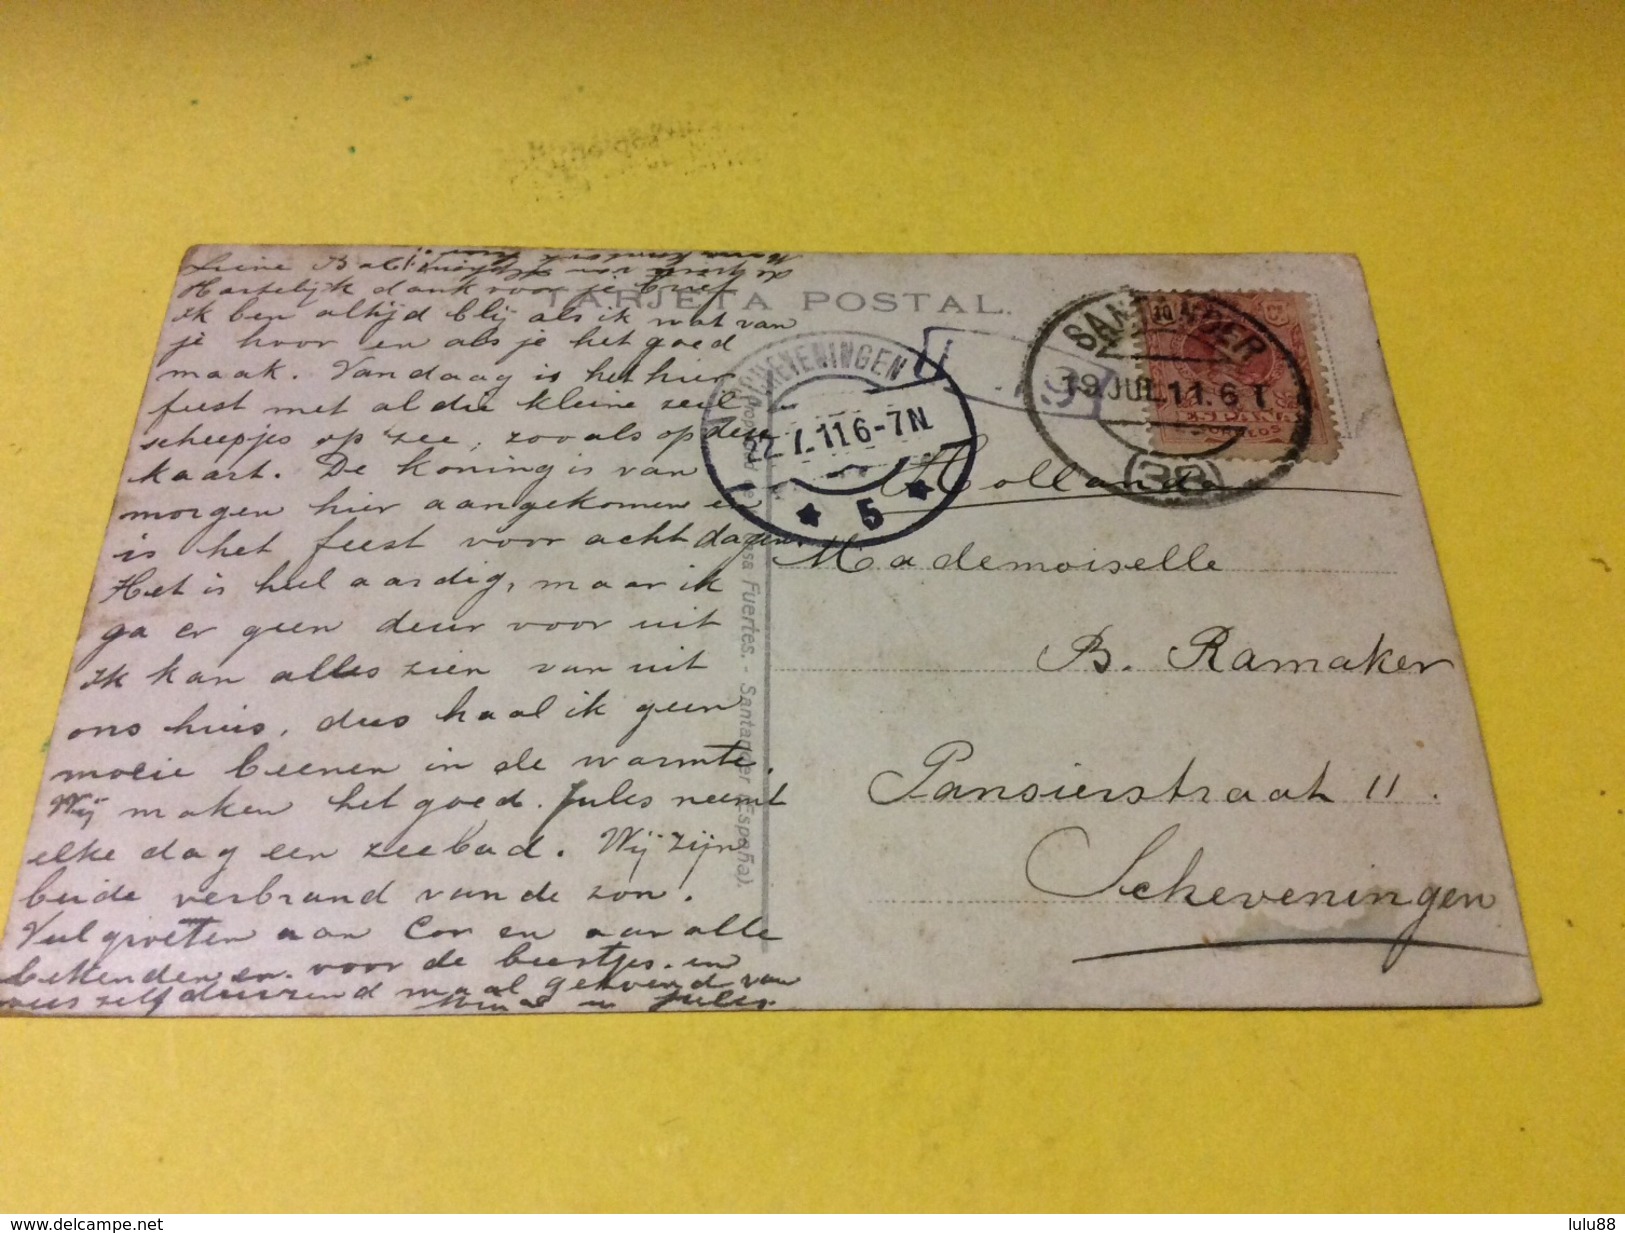 Hartelijk dank voor je brief
ik ben altijd blij als ik wat van
je hoor en als je het goed
maak. Vandaag is het hier
feest met al die kleine zeil
scheepjes op zee, zooals op deze
kaart. De koning is van
morgen hier aangekomen en
is het feest voor acht dagen
Het is heel aardig, maar ik
ga er geen deur voor uit
ik kan alles zien van uit
ons huis, dus haal ik geen
moeie beenen in de warmte.
Wij maken het goed. Jules neemt
elke dag een zeebad. Wij zijn
beide verbrand van de zon.
Veel groeten aan Cor en aan alle
bekenden en voor de beestjes en
zelf duizend maal gekund van
Jules
TARJETA POSTAL.
SCHEVENINGEN
22.7.11 6-7N
5
SANTANDER
19.JUL.11.6T
10
CORREOS
Hollande
Mademoiselle
B. Ramaker
Pansierstraat 11.
Scheveningen
Casa Fuertes. - Santander (España).
www.delcampe.net
lulu88